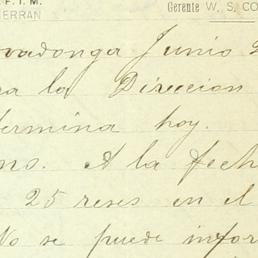 F. T. M.
HERRAN Gerente W. S. CO
vadonga Junio 2
ra la Direccion
termina hoy.
no. A la fech
25 reses en el
No se puede infor